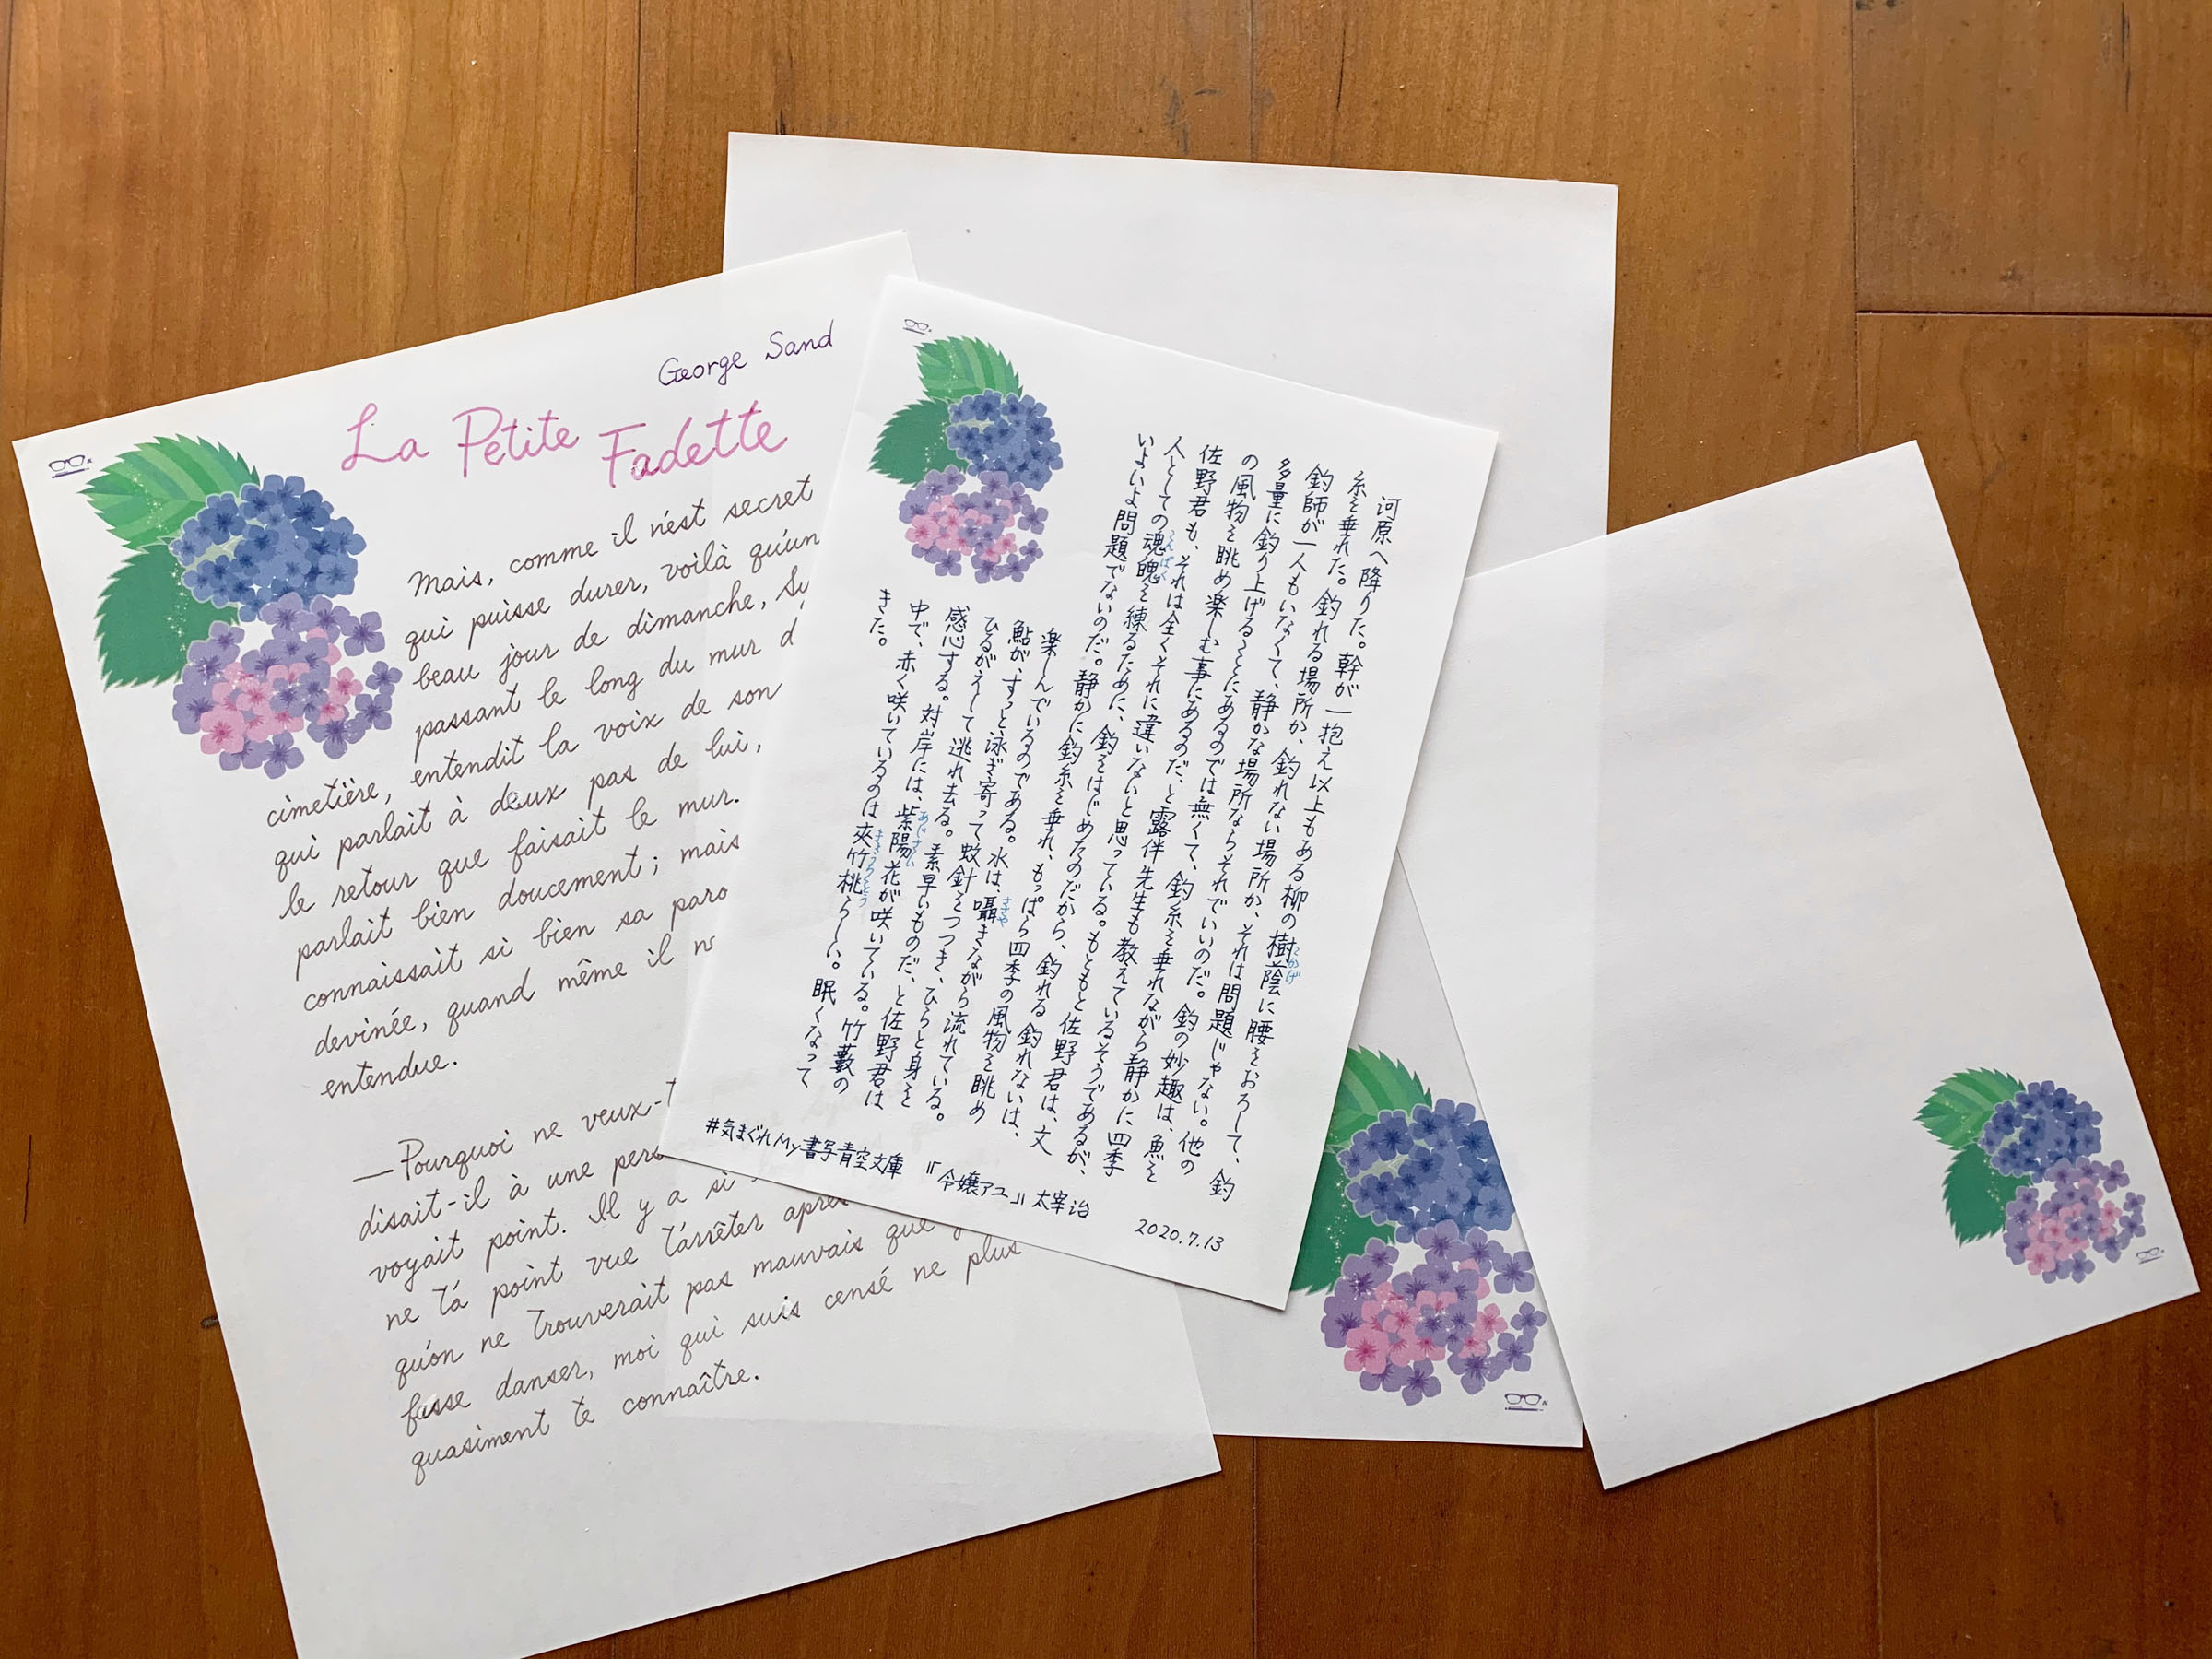 George Sand
La Petite
Fadette
Mais, comme il n'est secret
qui puisse durer, voilà qu'un
beau jour de dimanche, Sy
passant le long du mur d
cimetière, entendit la voix de son
qui parlait à deux pas de lui,
le retour que faisait le mur.
parlait bien doucement ; mais
connaissait si bien sa paro
devinée, quand même il n
entendue.
—Pourquoi ne veux-t
disait-il à une pers
voyait point. Il y a si
ne t'a point vue t'arrêter après
qu'on ne trouverait pas mauvais que
fasse danser, moi qui suis censé ne plus
quasiment te connaître.
河原へ降りた。幹が一抱え以上もある柳の樹蔭に腰をおろして、釣
糸を垂れた。釣れる場所か、釣れない場所か、それは問題じゃない。他の
釣師が一人もいなくて、静かな場所ならそれでいいのだ。釣の妙趣は、魚を
多量に釣り上げることにあるのでは無くて、釣糸を垂れながら静かに四季
の風物を眺め楽しむ事にあるのだ、と露伴先生も教えているそうであるが、
佐野君も、それは全くそれに違いないと思っている。もともと佐野君は、文
人としての魂魄を練るために、釣をはじめたのだから、釣れる釣れないは、
いよいよ問題でないのだ。静かに釣糸を垂れ、もっぱら四季の風物を眺め
楽しんでいるのである。水は、囁きながら流れている。
鮎が、すっと泳ぎ寄って蚊針をつつき、ひらと身を
ひるがえして逃れ去る。素早いものだ、と佐野君は
感心する。対岸には、紫陽花が咲いている。竹藪の
中で、赤く咲いているのは夾竹桃らしい。眠くなって
きた。
こかげ
こんぱく
ささや
あじさい
きょうちくとう
#気まぐれMy書写青空文庫 『令嬢アユ』太宰治
2020.7.13